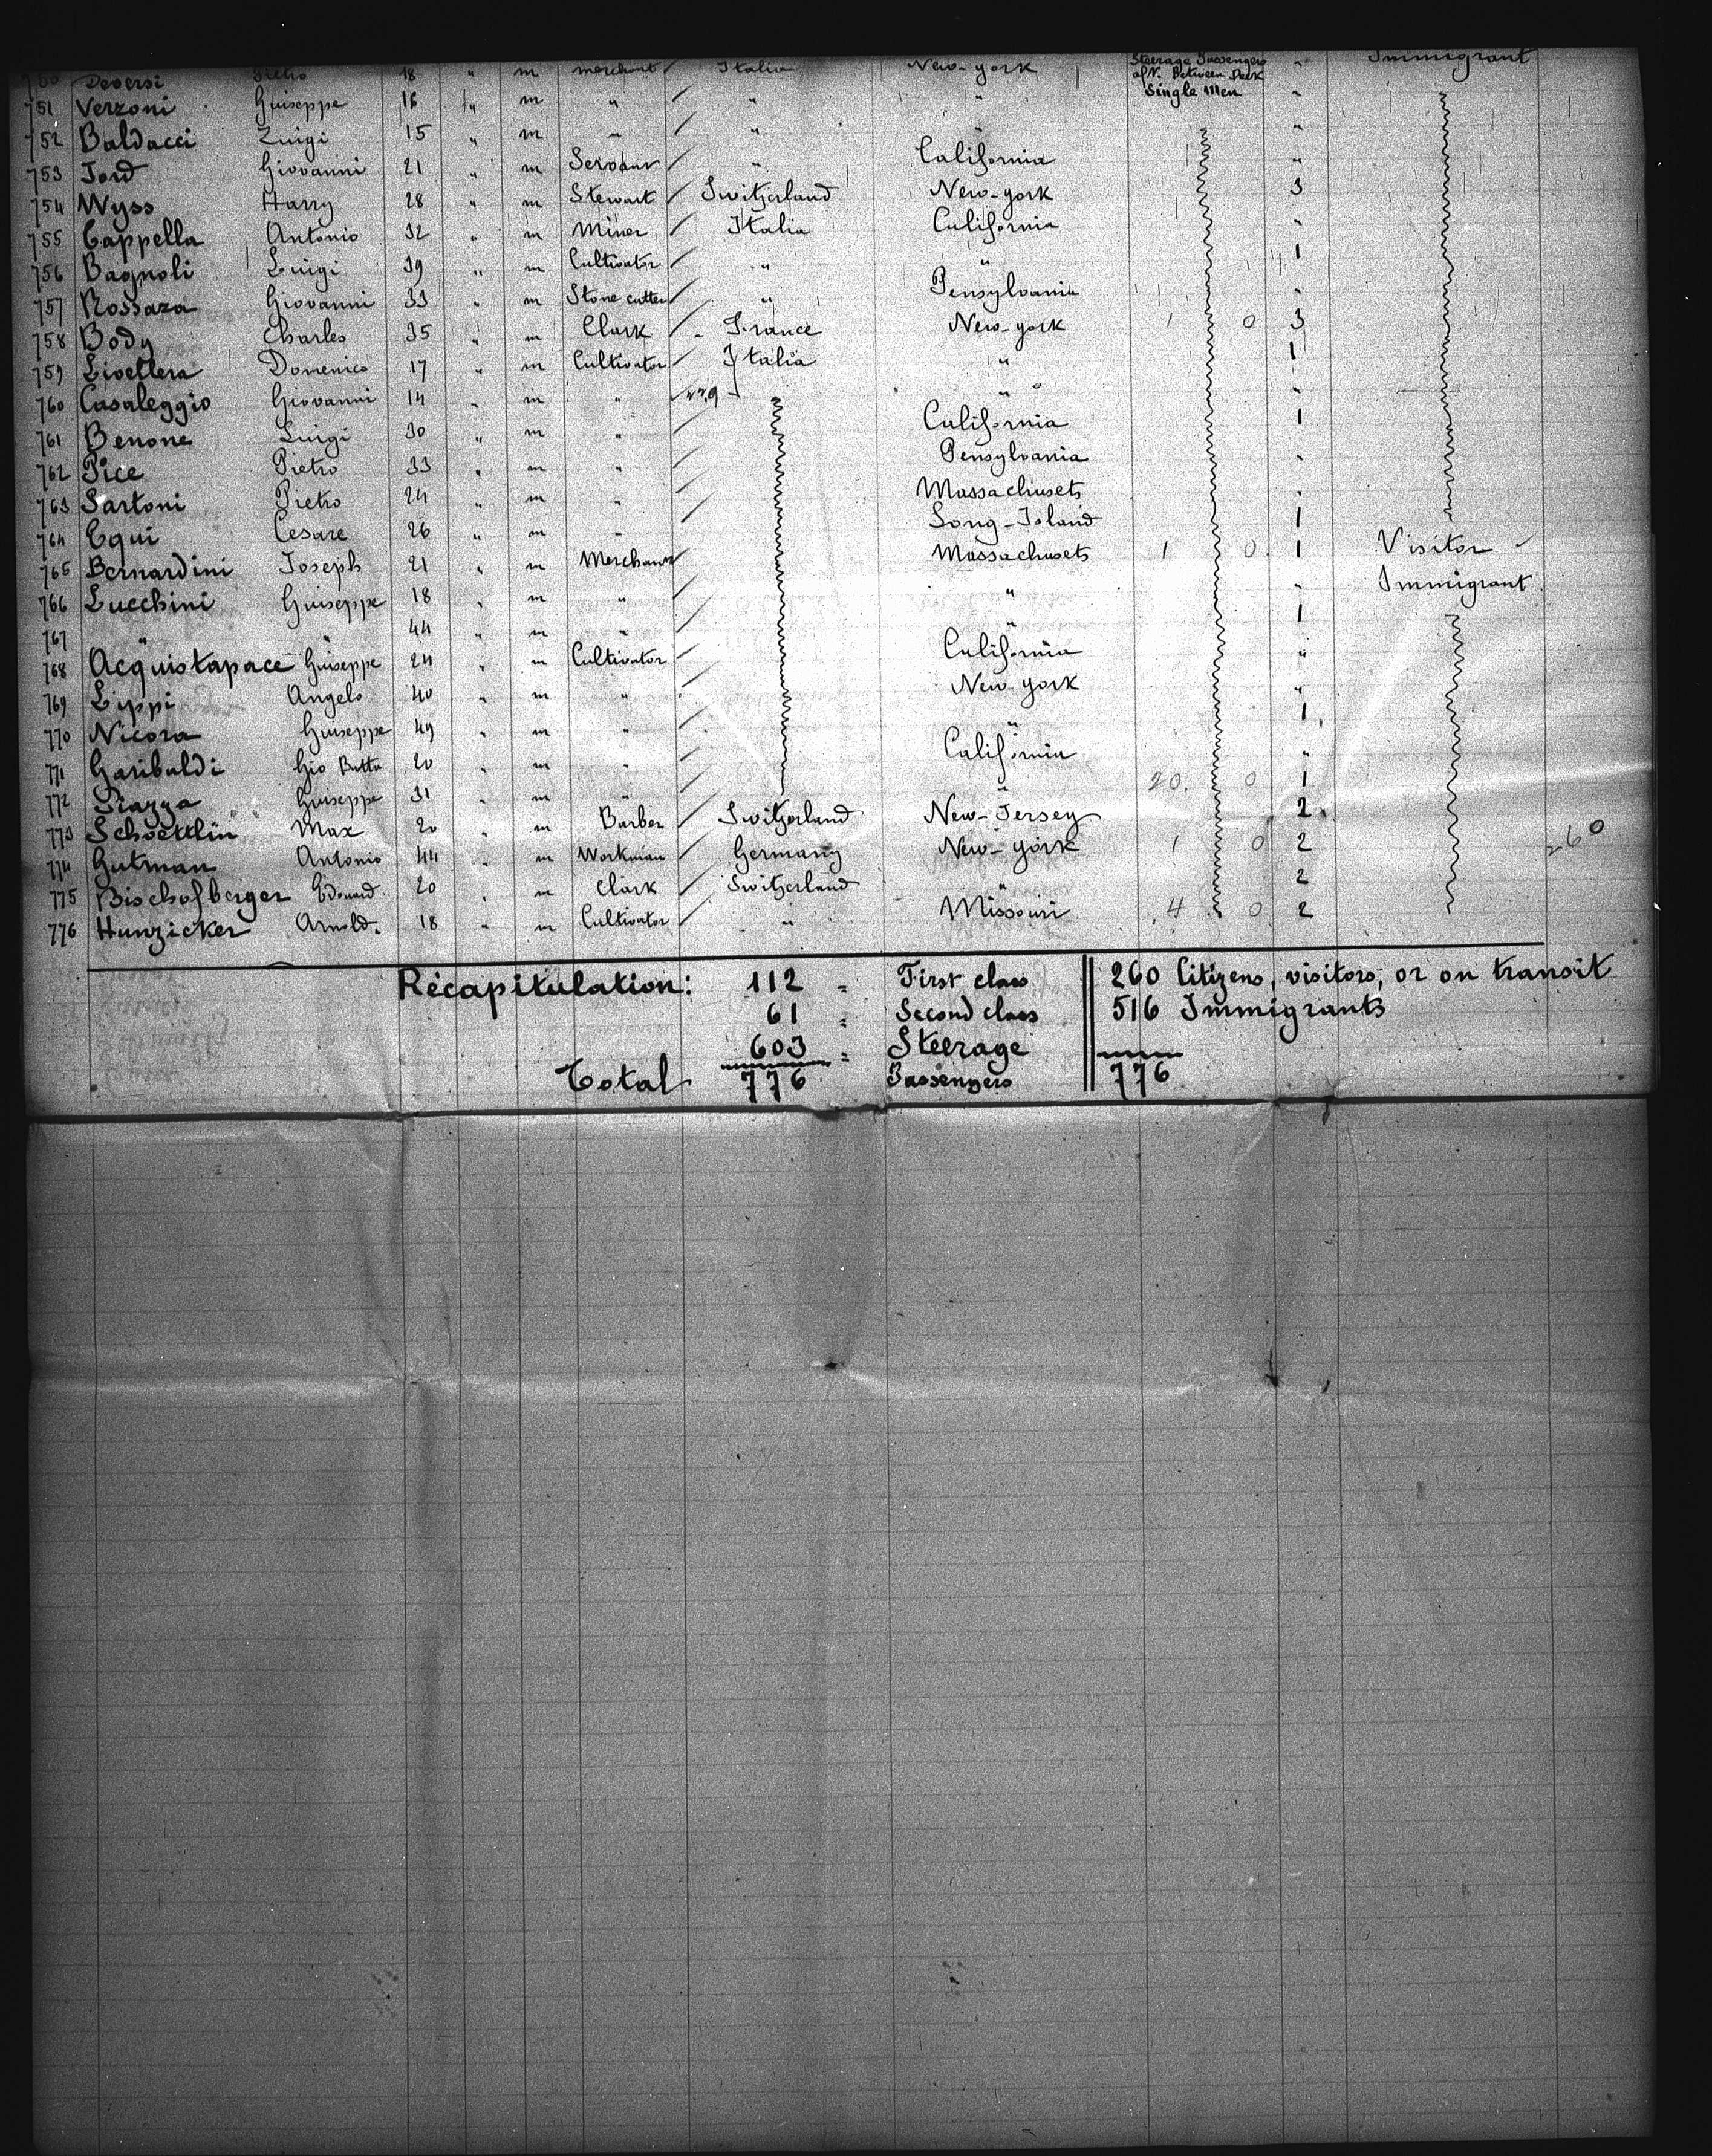 750 Deversi Pietro 18 " m merchant Italia New-york Steerage Passengers aft. Between Deck Single Men " Immigrant
751 Verzoni Guiseppe 16 " m " / " " "
752 Baldacci Luigi 15 " m " / " " "
753 Giovanni 21 " m Servant / " California "
754 Wyss Harry 28 " m Stewart / Switzerland New-york 3
755 Cappella Antonio 32 " m Miner / Italia California "
756 Bagnoli Luigi 39 " m Cultivator / " " 1
757 Rossaza Giovanni 33 " m Stone cutter / " Pensylvania "
758 Body Charles 35 " m Clark France New-york 1 0 3
759 Livellera Domenico 17 " m Cultivator / Italia " 1
760 Casaleggio Giovanni 14 " m " " "
761 Benone Luigi 30 " m " / California 1
762 Pice Pietro 33 " m " / Pensylvania "
763 Sartoni Pietro 24 " m " / Massachusets "
764 Equi Cesare 26 " m " / Long-Island 1
765 Bernardini Joseph 21 " m Merchant / Massachusets 1 0 1 Visitor
766 Lucchini Guiseppe 18 " m " / " " Immigrant
767 " " 44 " m " / " 1
768 Acquistapace Guiseppe 24 " m Cultivator / California "
769 Lippi Angelo 40 " m " / New-york "
770 Nicora Guiseppe 49 " m " / " 1
771 Garibaldi Gio Batta 20 " m " / California "
772 Piazza Guiseppe 31 " m " / " 20 0 1
773 Schoettlin Max 20 " m Barber / Switzerland New-Jersey 2
774 Gutman Antonio 44 " m Workman / Germany New-york 1 0 2 260
775 Bischofberger Edouard 20 " m Clark / Switzerland " 2
776 Hunzicker Arnold. 18 " m Cultivator / " Missouri 4 0 2
Récapitulation: 112 = First class 260 Citizens, visitors, or on transit
61 = Second class 516 Immigrants
603 = Steerage
Total 776 Passengers 776